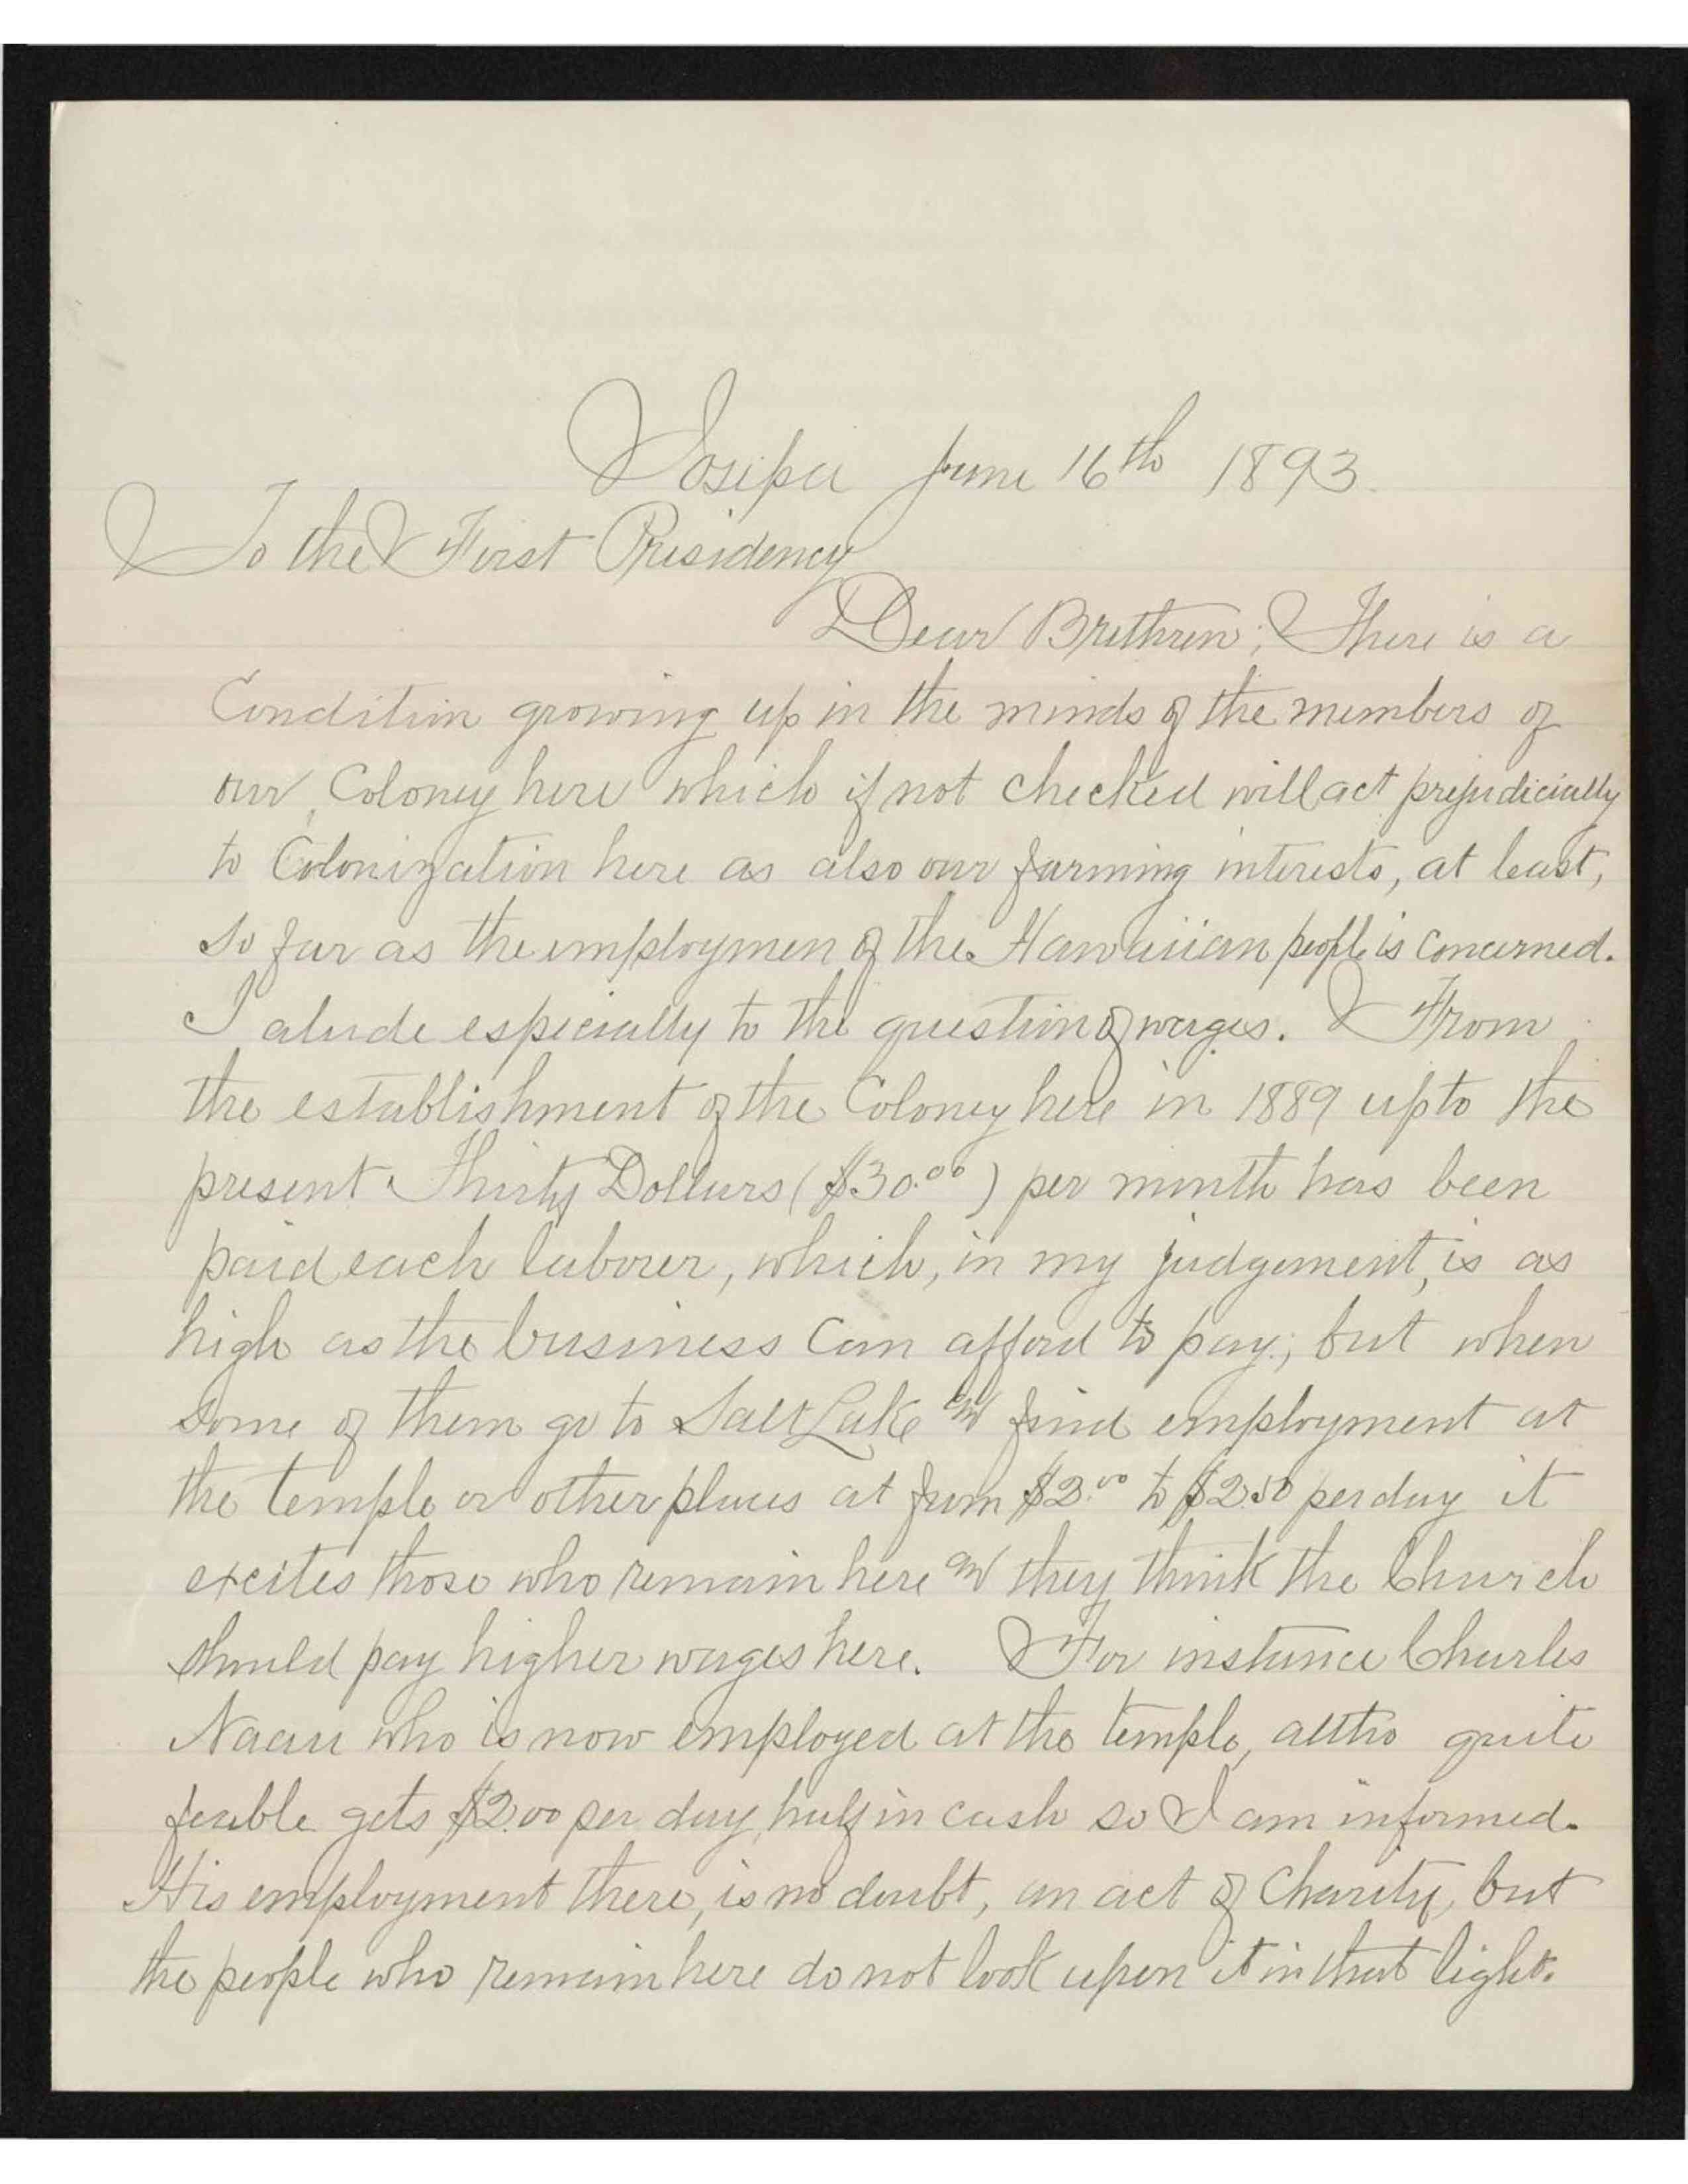 Iosepa June 16th 1893.
To the First Presidency
Dear Brethren; There is a
Condition growing up in the minds of the members of
our Colony here which if not checked will act prejudicially
to Colonization here as also our farming interests, at least,
so far as the employmen of the Hawaiian people is concerned.
I alude especially to the question of wages. From
the establishment of the Colony here in 1889 up to the
present Thirty Dollars ($30.00) per month has been
paid each laborer, which, in my judgement, is as
high as the business can afford to pay; but when
some of them go to Salt Lake and find employment at
the temple or other places at from $2.00 to $2.50 per day it
excites those who remain here and they think the Church
should pay higher wages here. For instance Charles
Naau who is now employed at the temple, altho quite
feable gets $2.00 per day, half in cash so I am informed.
His employment there, is no doubt, an act of Charity, but
the people who remain here do not look upon it in that light.